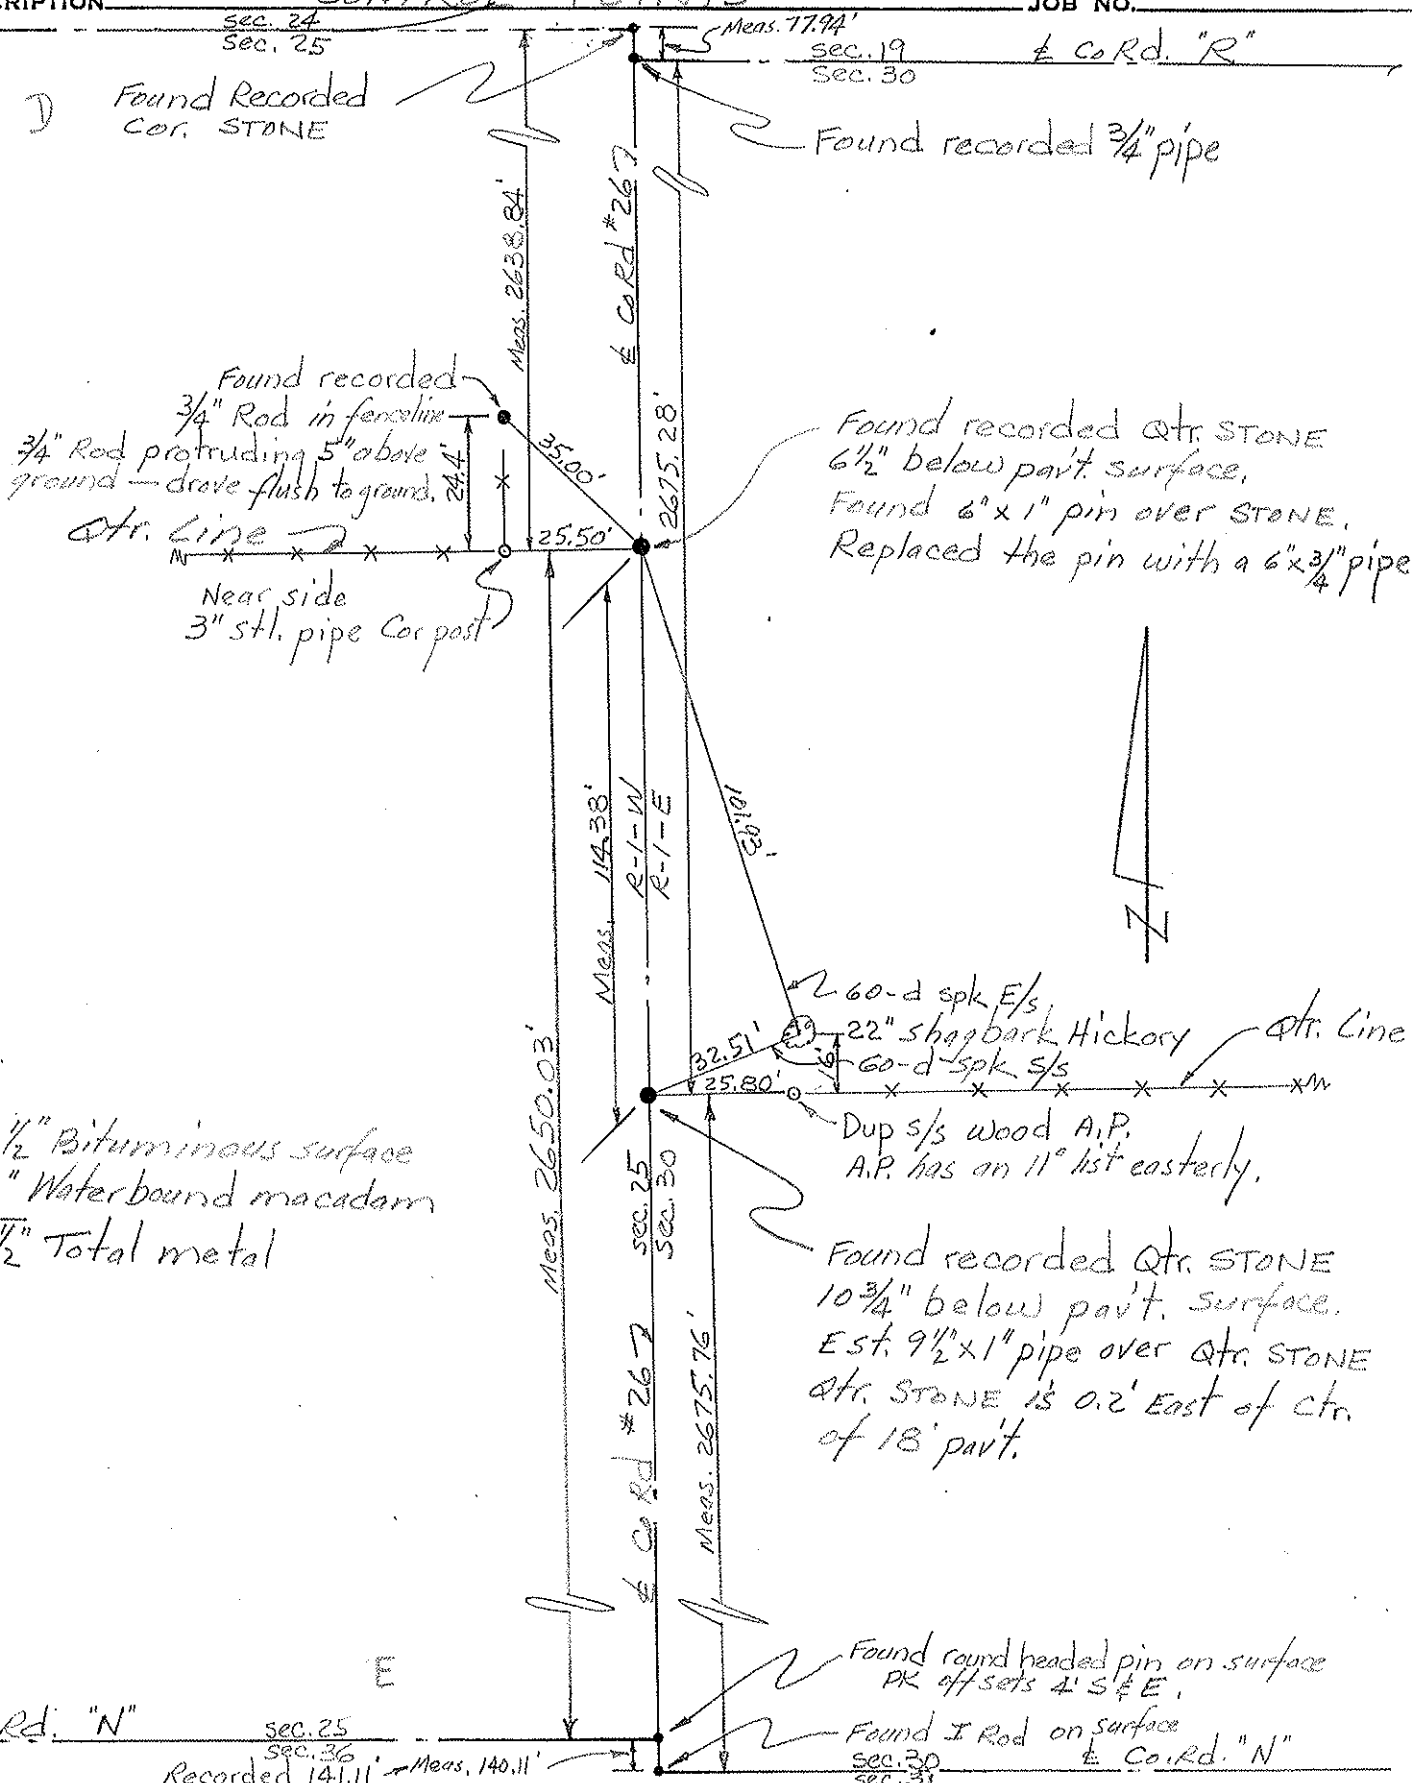 CRIPTION
CONTROL POINTS
JOB NO.
sec. 24
Sec. 25
Meas. 77.94'
sec. 19
Sec. 30
℄ Co Rd. "R"
D
Found Recorded
Cor. STONE
Found recorded 3/4" pipe
Meas. 2638.84'
℄ Co Rd #267
2675.28'
Found recorded
3/4" Rod in fenceline
3/4" Rod protruding 5" above
ground — drove flush to ground.
24.4'
35.00'
Qtr. Line
25.50'
Near side
3" stl. pipe Cor post
Found recorded Qtr. STONE
6 1/2" below pav't. surface.
Found 6" x 1" pin over STONE.
Replaced the pin with a 6" x 3/4" pipe
Meas. 114.38'
R-1-W
R-1-E
101.93'
N
60-d spk E/s
22" Shagbark Hickory
60-d spk S/s
Qtr. Line
32.51'
25.80'
Dup s/s wood A.P.
A.P. has an 11° list easterly.
1/2" Bituminous surface
" Waterbound macadam
1/2" Total metal
Meas. 2650.03'
sec. 25
sec. 30
Found recorded Qtr. STONE
10 3/4" below pav't. surface.
Est. 9 1/2" x 1" pipe over Qtr. STONE
Qtr. STONE is 0.2' East of Ctr.
of 18' pav't.
℄ Co Rd #267
Meas. 2675.76'
E
Found round headed pin on surface
PK offsets 4' S & E.
Rd. "N"
sec. 25
sec. 36
Found I Rod on surface
Recorded 141.11'
Meas. 140.11'
sec. 30
sec. 31
℄ Co. Rd. "N"